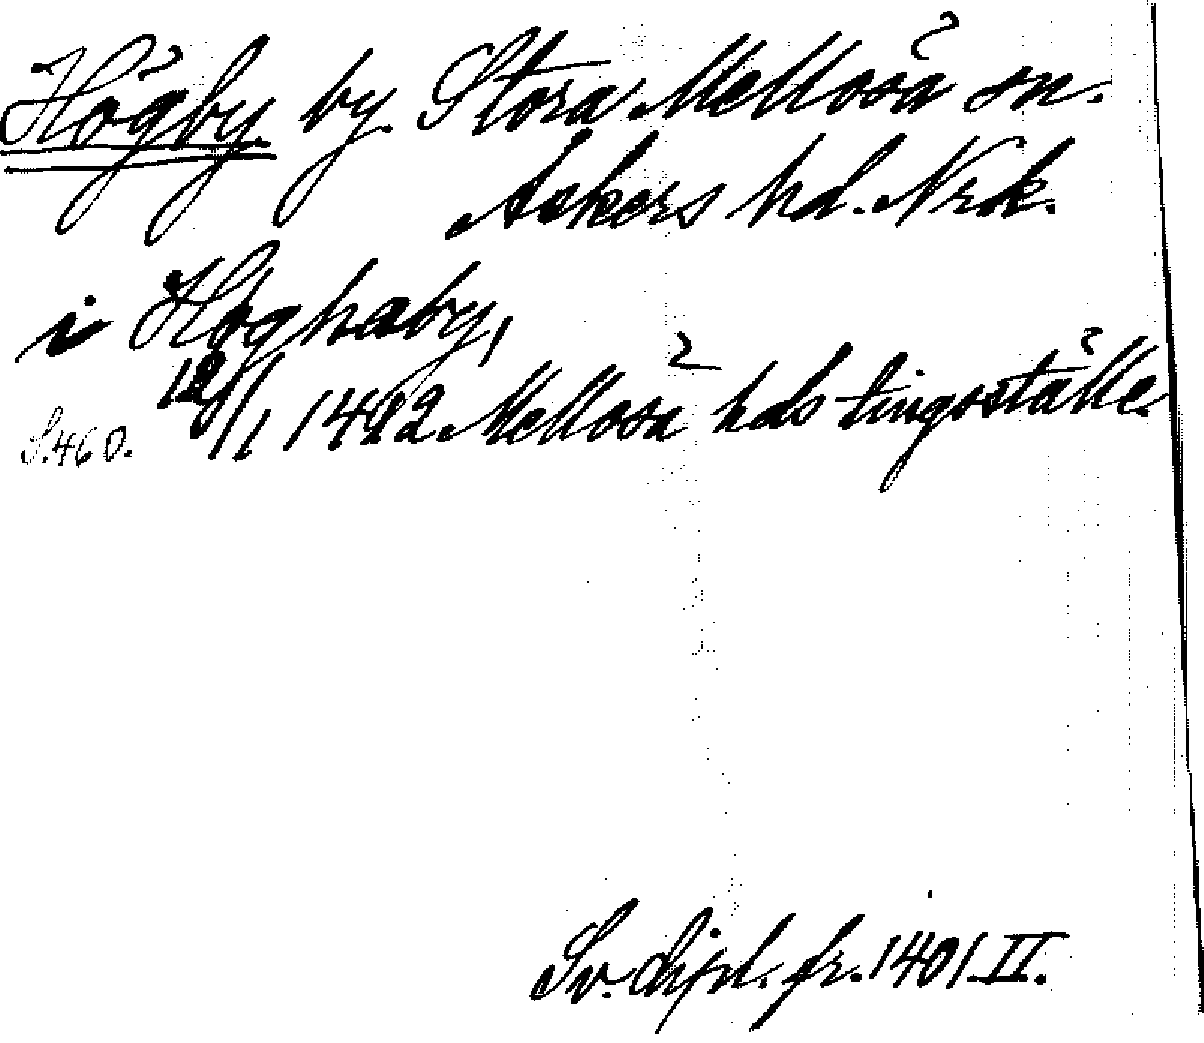 Högby. by. Stora Mellösa sn.
Askers hd. Nrk.
i Høghaby,
12/1 1412. Mellösa hds tingsställe.
S. 460.
Sv. dipl. fr. 1401. II.